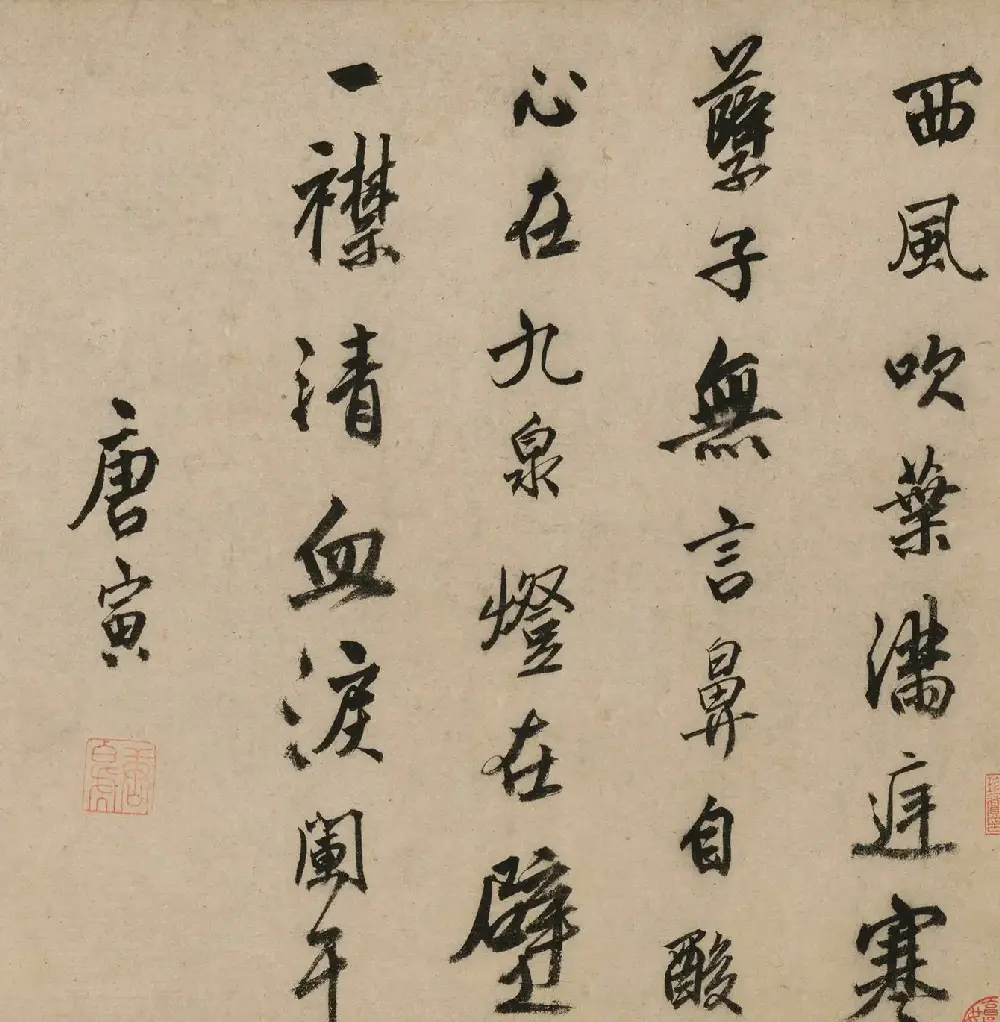 西風吹葉滿庭寒
孽子無言鼻自酸
心在九泉燈在壁
一襟清血淚闌干
唐寅